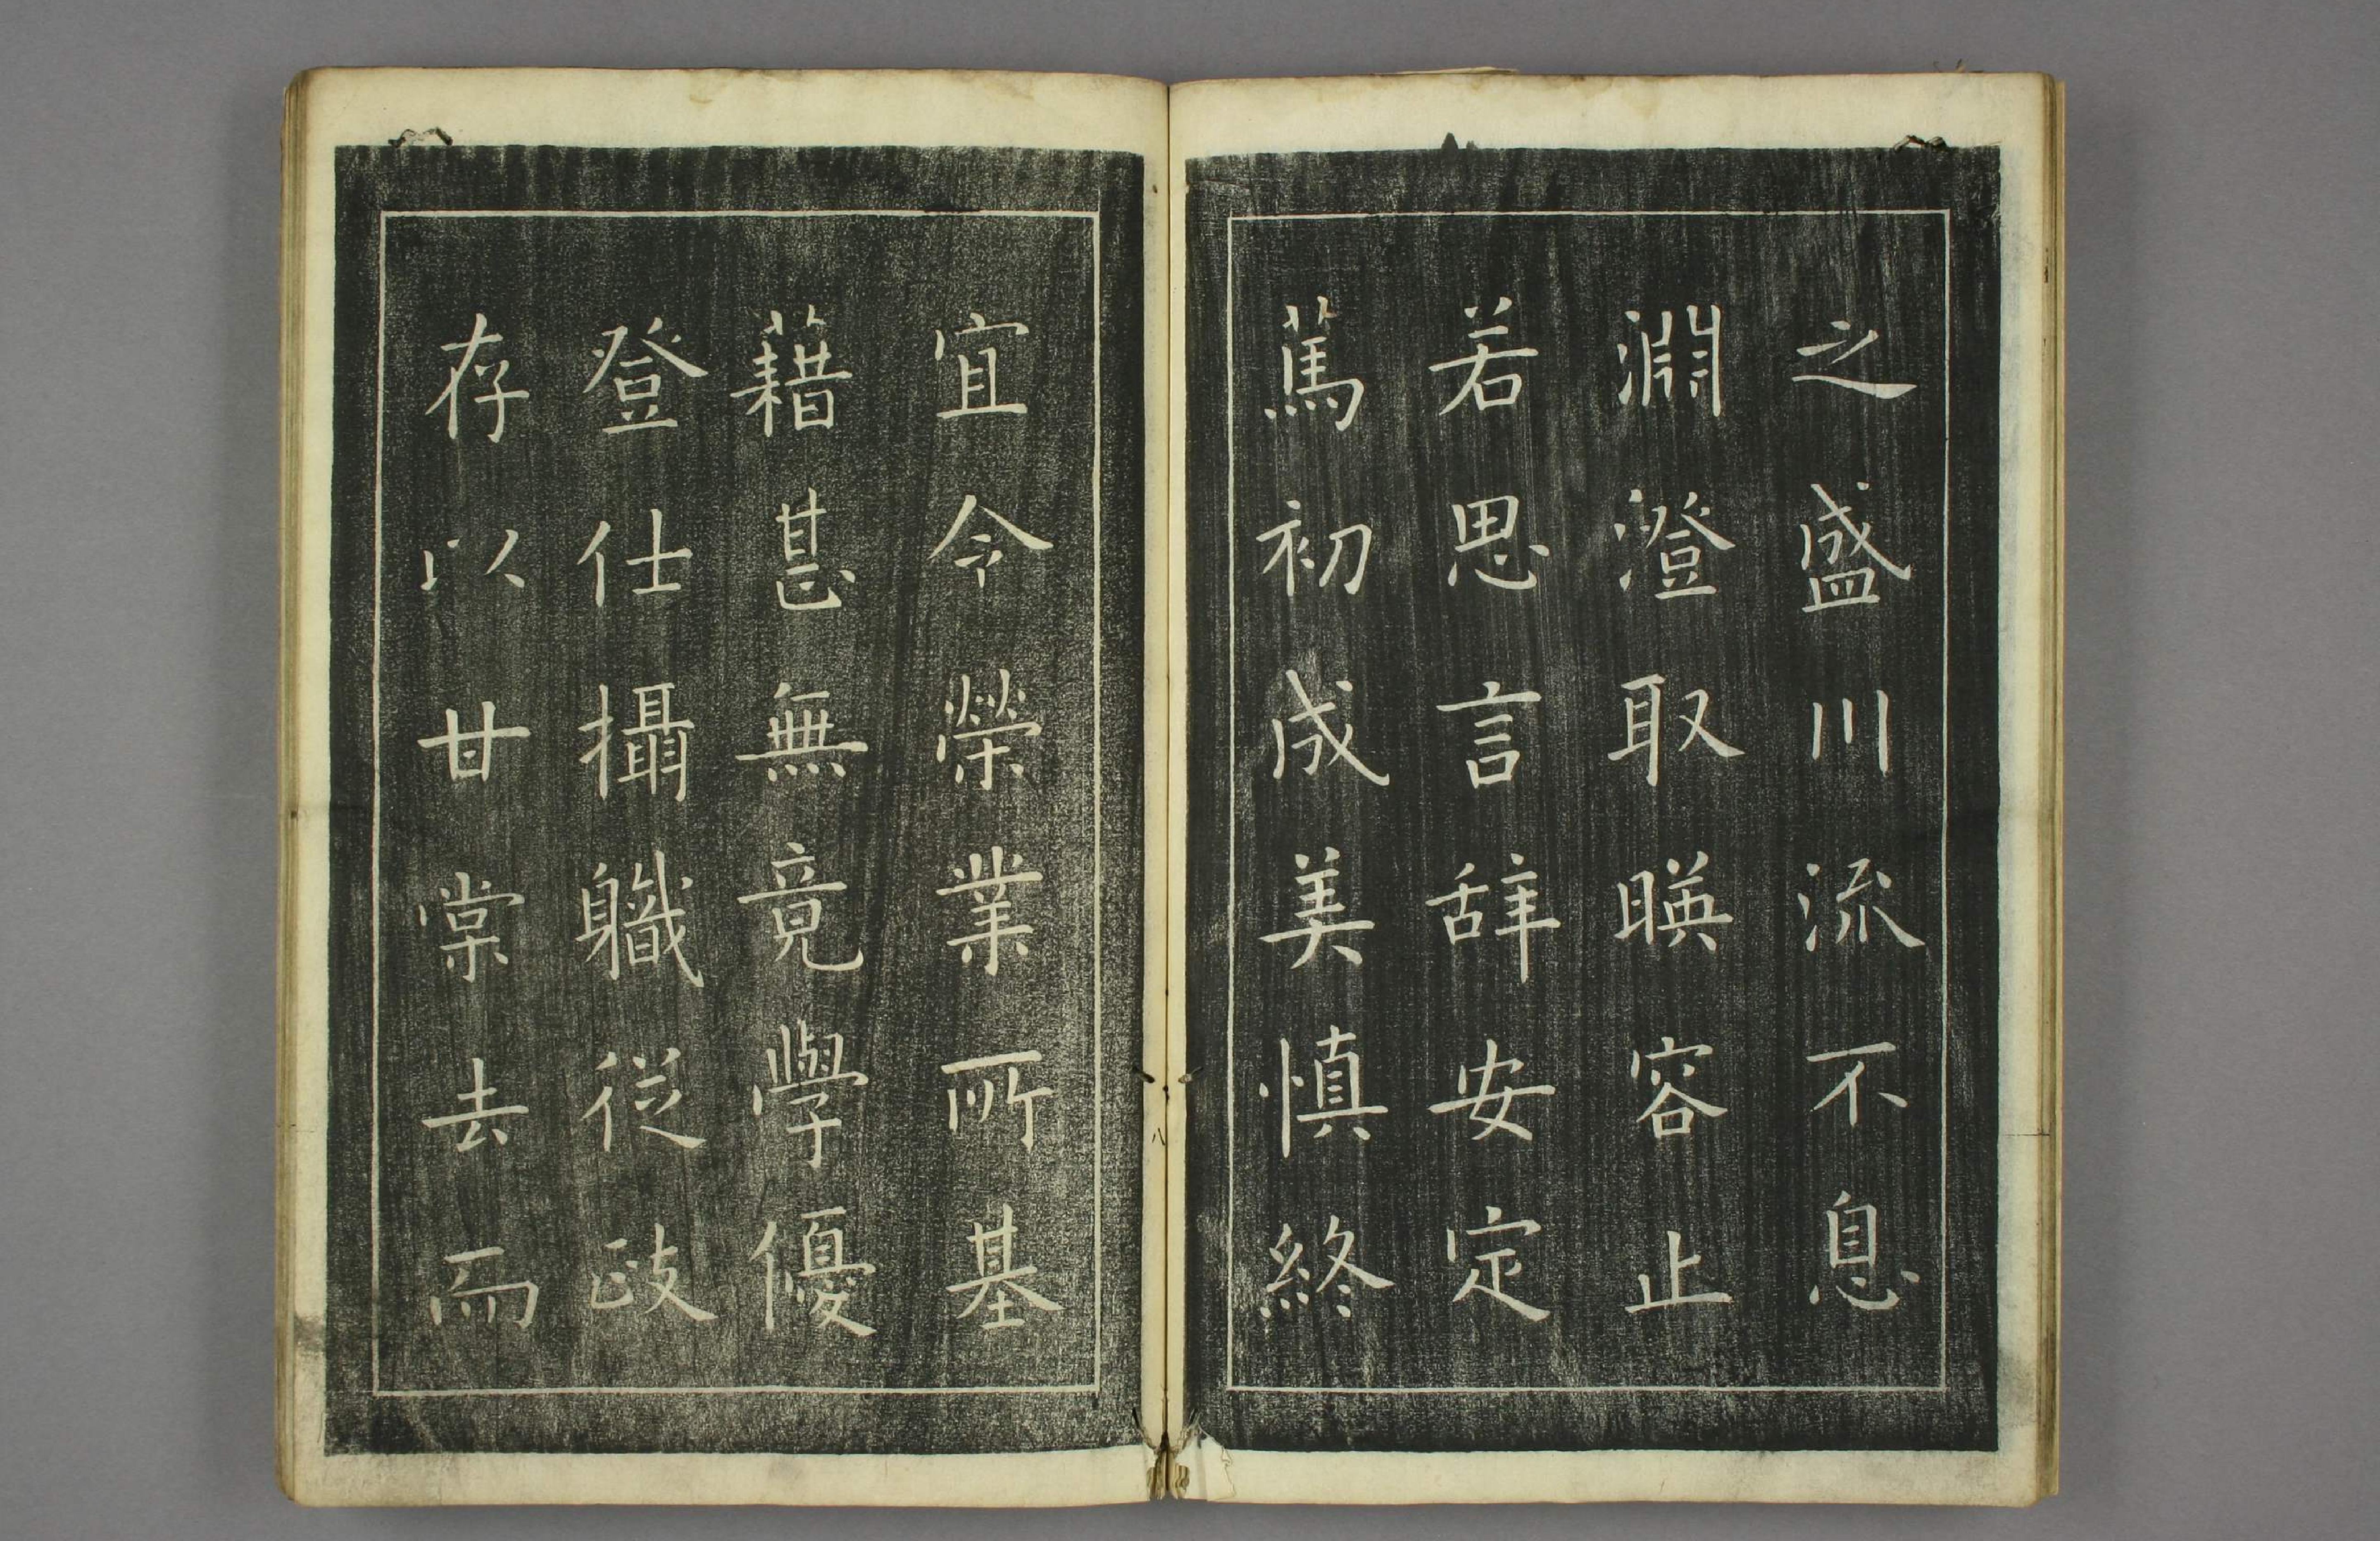 之盛川流不息
淵澄取暎容止
若思言辞安定
萬初成美慎終
宜令榮業所基
藉甚無竟學優
登仕攝職從政
存以甘棠去而